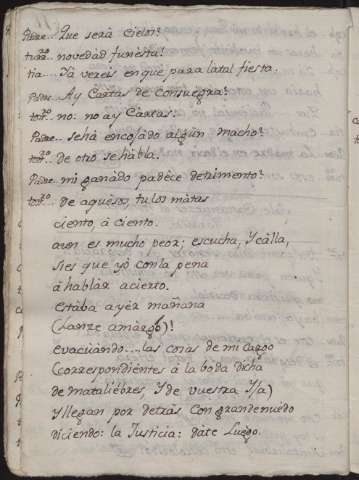 Padre... Que será cielos!
torzº. novedad funesta!
tia.... Ya vereis en que para la tal fiesta.
Padre.. Ay Cartas de consuegra?
torº. no: no ay Cartas:
Padre... Se ha encojado algun macho?
torº.. de otro se habla.
Padre.. mi ganado padece detrimento?
torº. de aquesos, tu los matas
ciento, à ciento.
aun es mucho peor; escucha, Ycàlla,
si es que yò con la pena
à hablar acierto.
estàba ayèr mañana
(Lanze amàrgo)!
evacuando.... las cosas de mi cargo
(correspondientes à la boda dicha
de mataliébres, Yde vuestra Yja)
Y llegan por detràs con grandenuedo
diciendo: la Justicia: dàte Luego.